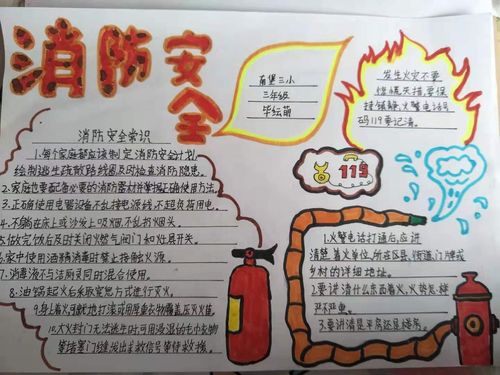 消防安全
南堡三小
三年级
毕绘萌
发生火灾不要
惊慌失措,要保
持镇静,火警电话号
码119要记清。
119
消防安全常识
1.每个家庭都应该制定消防安全计划,
绘制逃生疏散路线图及时检查消防隐患。
2.家庭也要配备必要的消防器材并掌握正确使用方法。
3.正确使用电器设备不乱接电源线,不超负荷用电。
4.不躺在床上或沙发上吸烟,不乱扔烟头。
5.做饭完饭后及时关闭燃气阀门和灶具开关。
6.家中使用酒精消毒时禁止接触火源。
7.消毒液不与洁厕灵同时混合使用。
8.油锅起火后采取窒息方式进行灭火。
9.身上着火可就地打滚或用厚重衣物覆盖压灭火苗
10.大火封门无法逃生时可用浸湿的毛巾衣物
等堵塞门缝,发出求救信号等待救援。
1.火警电话打通后,应讲
清楚着火单位,所在区县、街道、门牌或
乡村的详细地址。
2.要讲清什么东西着火,火势怎样
严不严重。
3.要讲清是平房还是楼房。